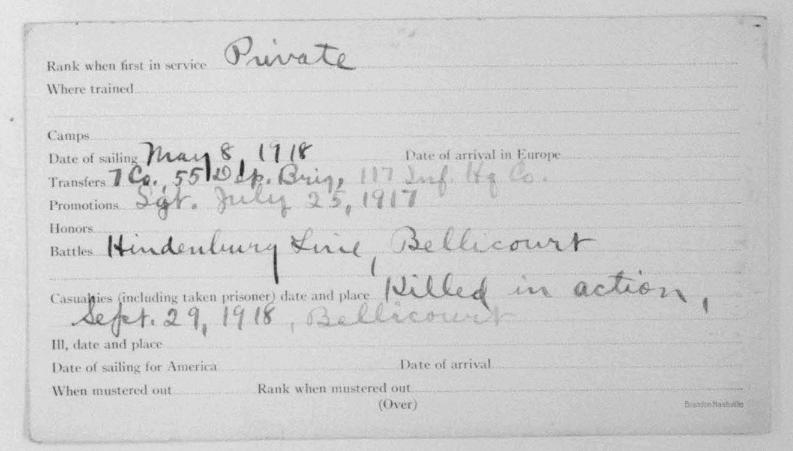 Rank when first in service Private
Where trained
Camps
Date of sailing May 8, 1918 Date of arrival in Europe
Transfers 7 Co., 55 Dep. Brig, 117 Inf. Hq Co.
Promotions Sgt. July 25, 1917
Honors
Battles Hindenburg Line, Bellicourt
Casualties (including taken prisoner) date and place Killed in action,
Sept. 29, 1918, Bellicourt
Ill, date and place
Date of sailing for America Date of arrival
When mustered out Rank when mustered out
(Over)
Brandon Nashville